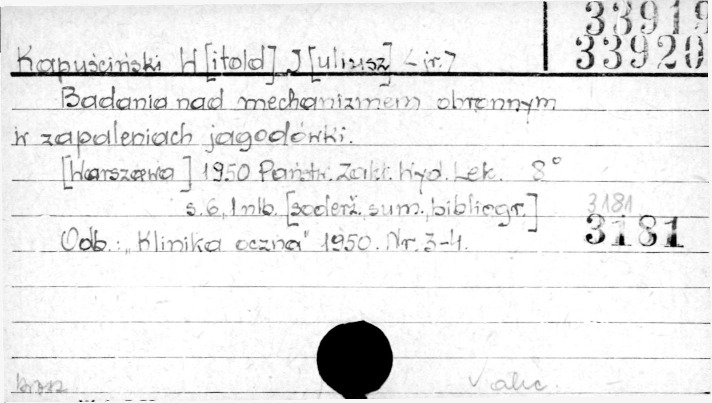 33919
33920
Kapuściński W[itold] J[uliusz] - jr.7
Badania nad mechanizmem obronnym
w zapaleniach jagodówki.
[Warszawa] 1950 Państw. Zakł. Wyd. Lek. 8°
s. 6, 1 nlb. [soderż. sum., bibliogr.]
3181
3181
Odb.: „Klinika oczna" 1950. Nr. 3-4.